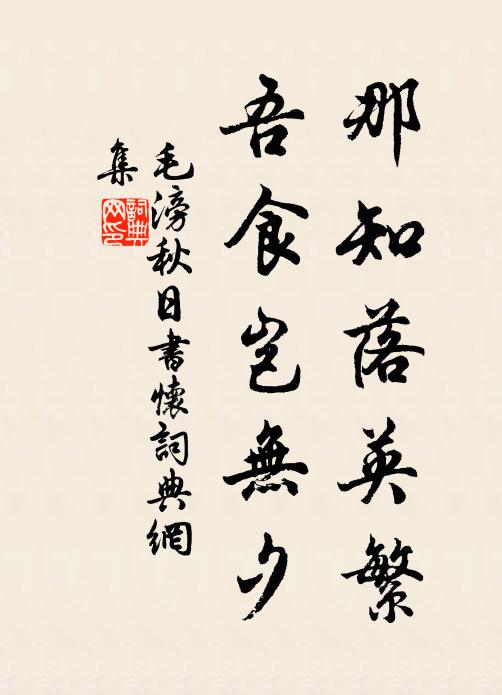 那知落英繁
吾食岂無夕
毛滂秋日書懷詞典網
集
詞典
网印